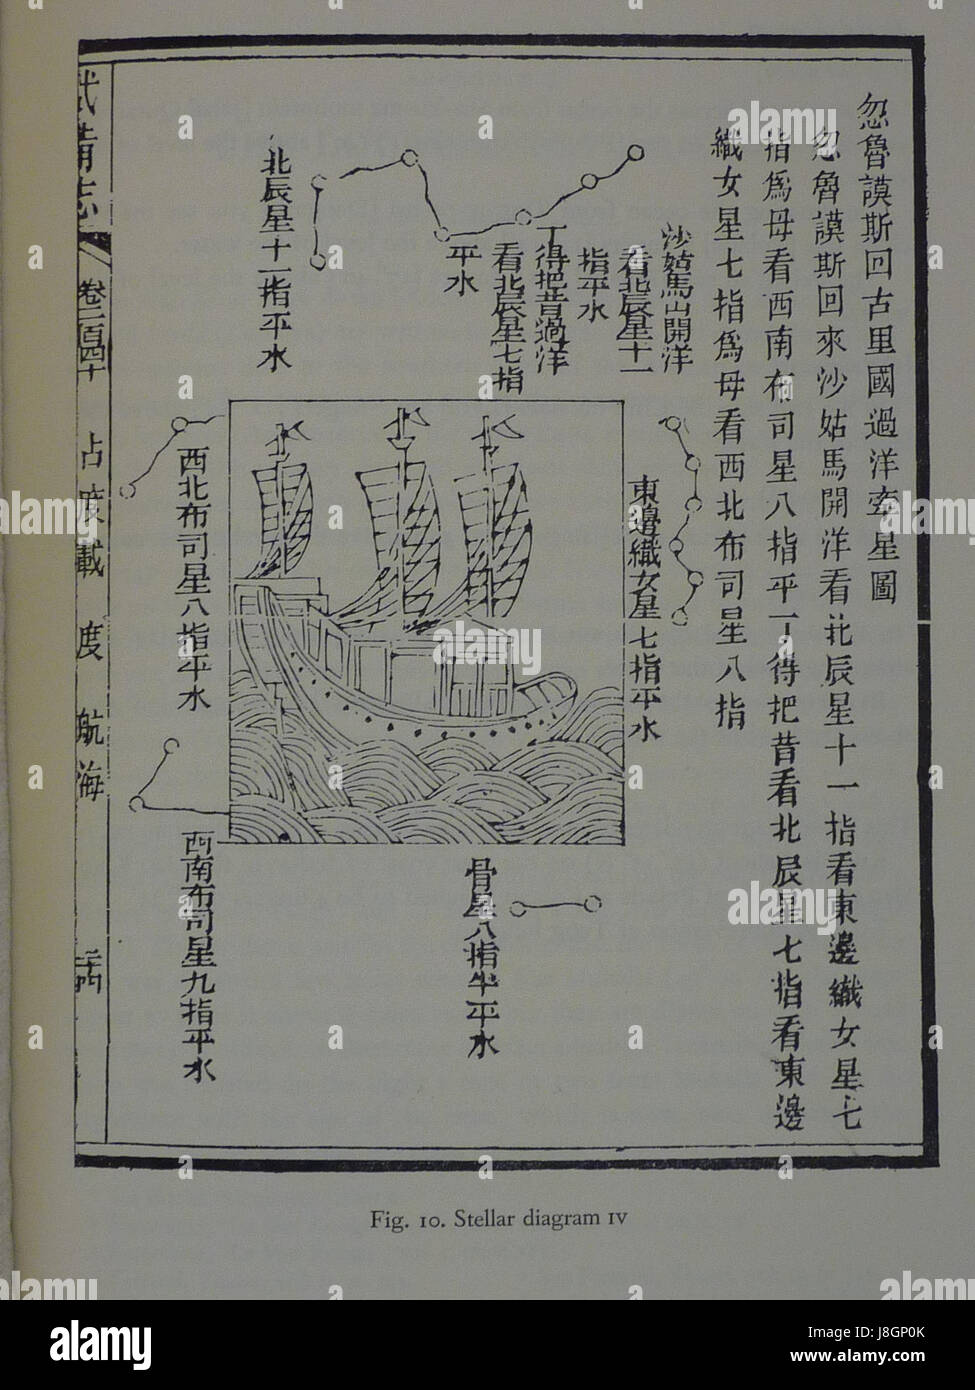 忽魯謨斯回古里國過洋牽星圖
忽魯謨斯回來沙姑馬開洋看北辰星十一指看東邊織女星七
指為母看西南布司星八指平丁得把昔看北辰星七指看東邊
織女星七指為母看西北布司星八指
沙姑馬山開洋
看北辰星十一
指平水
丁得把昔過洋
看北辰星七指
平水
北辰星十一指平水
東邊織女星七指平水
西北布司星八指平水
骨星八指半平水
西南布司星九指平水
武備志
卷二百四十
占度載
度
航海
Fig. 10. Stellar diagram IV
alamy
Image ID: J8GP0K
www.alamy.com